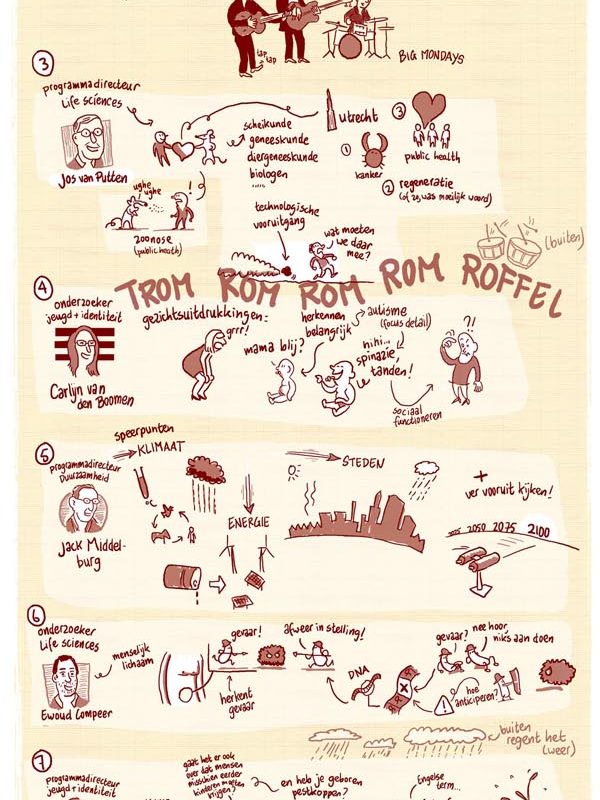 tap
tap
BIG MONDAYS
3
programmadirecteur
Life sciences
Jos van Putten
scheikunde
geneeskunde
diergeneeskunde
biologen
....
Utrecht
1
kanker
3
public health
2 regeneratie
(of zo, was moeilijk woord)
ughe
ughe
!
zoönose
(public health)
technologische
vooruitgang
wat moeten
we daar
mee?
(buiten)
TROM ROM ROM ROM ROFFEL
4
onderzoeker
jeugd + identiteit
Carlijn van
den Boomen
gezichtsuitdrukkingen:
grrr!
mama blij?
herkennen
belangrijk
autisme
(focus detail)
hihi...
spinazie,
tanden!
?!
sociaal
functioneren
5
programmadirecteur
Duurzaamheid
Jack Middel-
burg
speerpunten
KLIMAAT
ENERGIE
STEDEN
+
ver vooruit kijken!
2050 2075 2100
6
onderzoeker
Life sciences
Ewoud Compeer
menselijk
lichaam
gevaar!
afweer in stelling!
herkent
gevaar
DNA
X
gevaar?
nee hoor,
niks aan doen
!
hoe
anticiperen?
buiten
regent het
(weer)
7
programmadirecteur
jeugd + identiteit
gaat het er ook
over dat mensen
misschien eerder
kinderen moeten
krijgen?
en heb je geboren
pestkoppen?
Engelse
term...